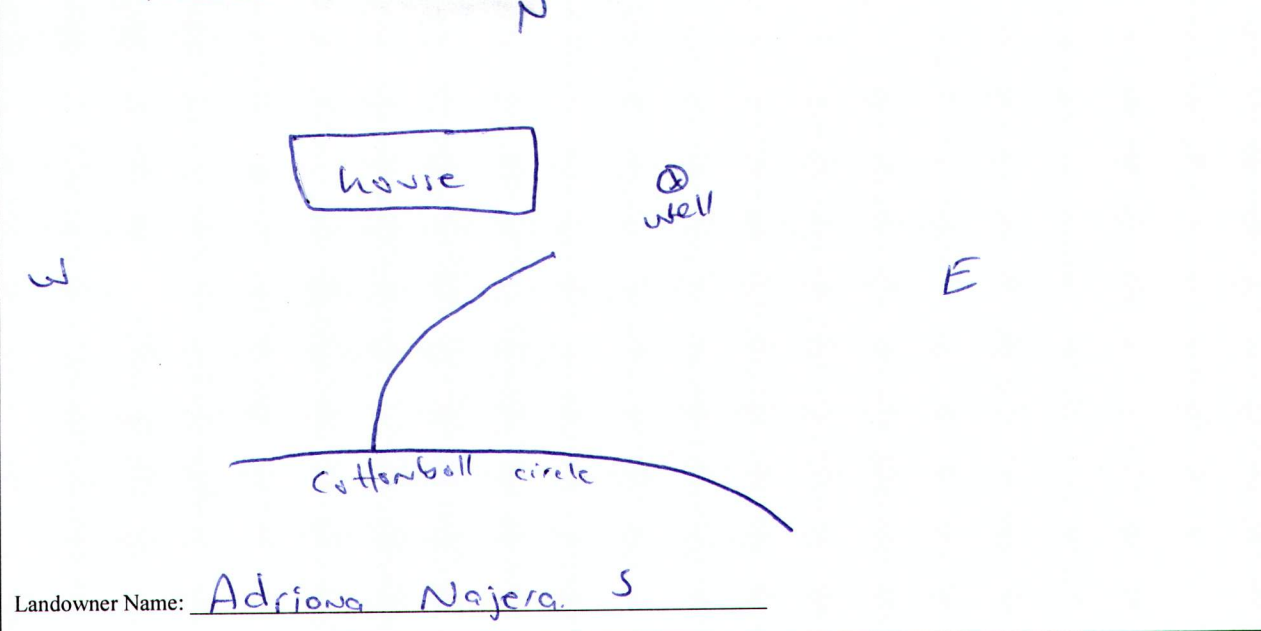 N
house
well
W
E
Cottonboll circle
S
Landowner Name: Adriana Najera.